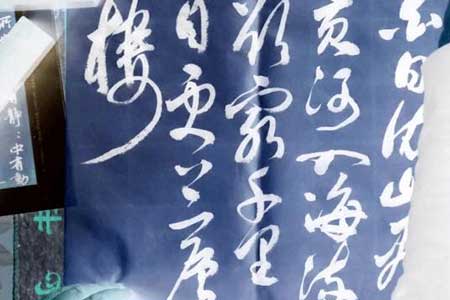 白日依山尽
黄河入海流
欲窮千里
目更上一層
樓
静：中有動